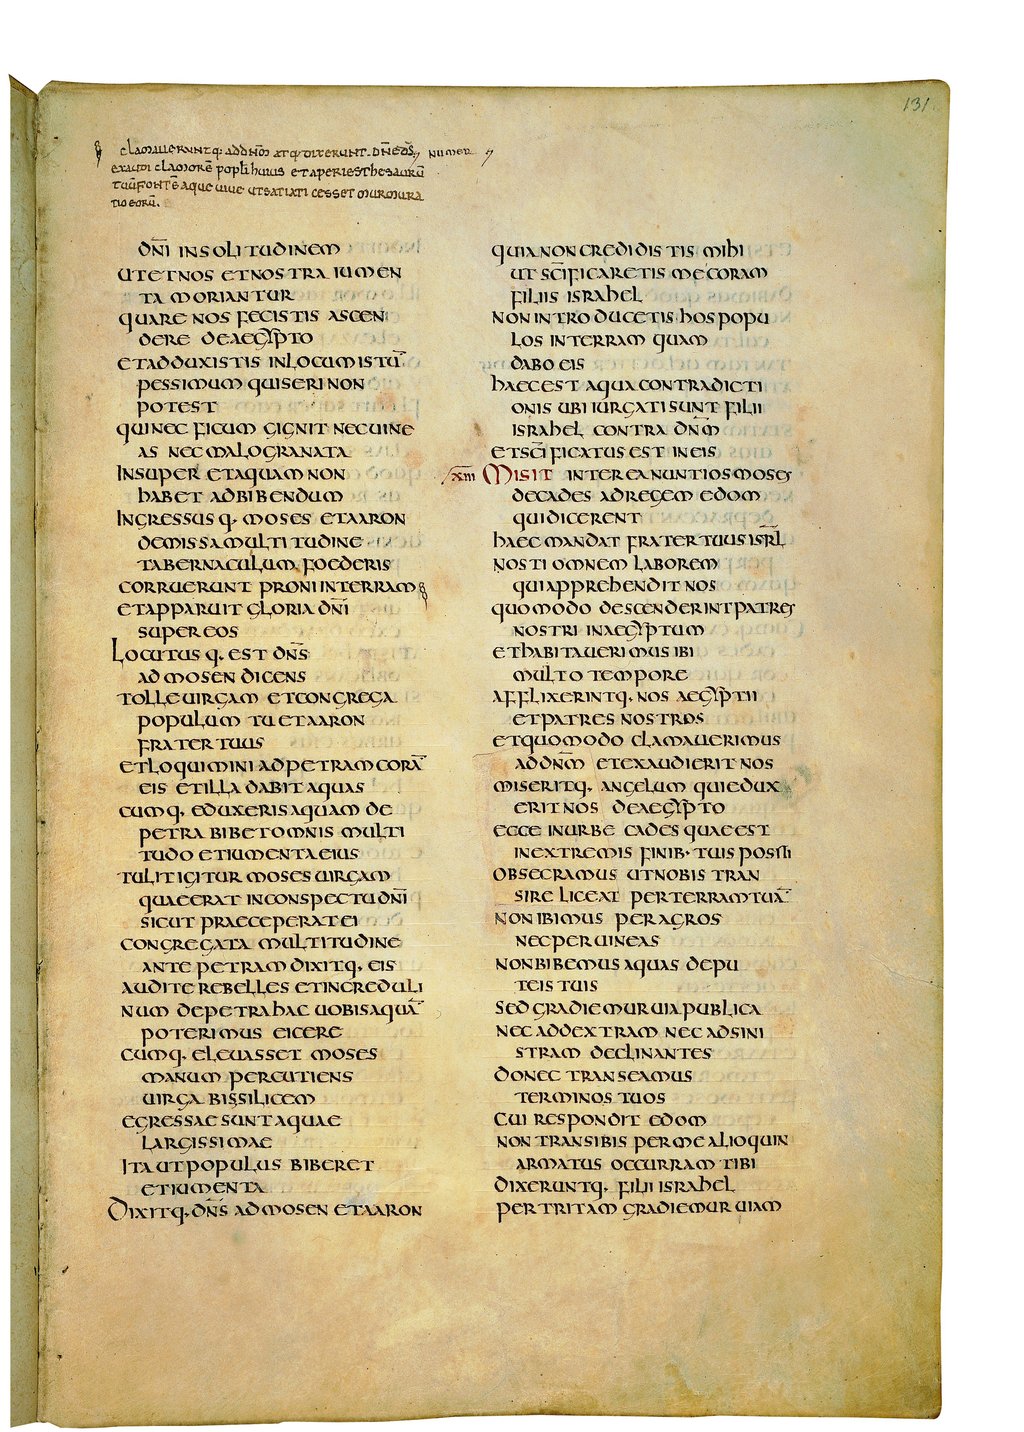 131
clamaueruntq· addnm̄ atq· dixerunt· dnēds̄ numer
exaudi clamorē popli huius etaperiesthesaurū
tuū fontē aque uiue utsatiati cesset murmura
tio eorū·
dn̄i insolitudinem
utetnos etnostra iumen
ta moriantur
quare nos fecistis ascen
dere deaegypto
etadduxistis inlocumistū
pessimum quiseri non
potest
quinec ficum gignit necuine
as necmalogranata
insuper etaquam non
habet adbibendum
ingressusq· moses etaaron
demissamultitudine
tabernaculum foederis
corruerunt proniinterram
etapparuit gloria dn̄i
supereos
Locutusq· est dn̄s
ad mosen dicens
tolleuirgam etcongrega
populum tuetaaron
fratertuus
etloquimini adpetramcorā
eis etilladabitaquas
cumq· eduxerisaquam de
petra bibetomnis multi
tudo etiumentaeius
tulitigitur moses uirgam
quaeerat inconspectudn̄i
sicut praeceperatei
congregata multitudine
antepetramdixitq· eis
auditerebelles etincreduli
num depetrahac uobisaquā
poterimus eicere
cumq· eleuasset moses
manum percutiens
uirga bissilicem
egressaesuntaquae
largissimae
itautpopulus biberet
etiumenta
Dixitq· dn̄s admosen etaaron
quianoncredidistis mihi
ut scīficaretis mecoram
filiis israhel
nonintroducetis hospopu
los interram quam
dabo eis
haecest aquacontradicti
onis ubi iurgatisunt filii
israhel contra dn̄m
etscīficatus est ineis
xiii Misit intereanuntiosmoses
decades adregem edom
quidicerent
haec mandat fratertuusisrl̄
nosti omnem laborem
quiapprehenditnos
quomodo descenderintpatres
nostri inaegyptum
ethabitauerimusibi
multo tempore
afflixerintq· nos aegyptii
etpatres nostros
etquomodo clamauerimus
addn̄m etexaudierit nos
miseritq· angelum quiedux
eritnos deaegypto
ecce inurbe cades quaeest
inextremis finib· tuis positi
obsecramus utnobis tran
sire liceat perterramtuā
nonibimus peragros
necperuineas
nonbibemusaquas depu
teistuis
sedgradiemuruiapublica
necaddextram necadsini
stram declinantes
donec transeamus
terminos tuos
cui respondit edom
nontransibis permealioquin
armatus occurram tibi
dixeruntq· filiiisrahel
pertritam gradiemuruiam